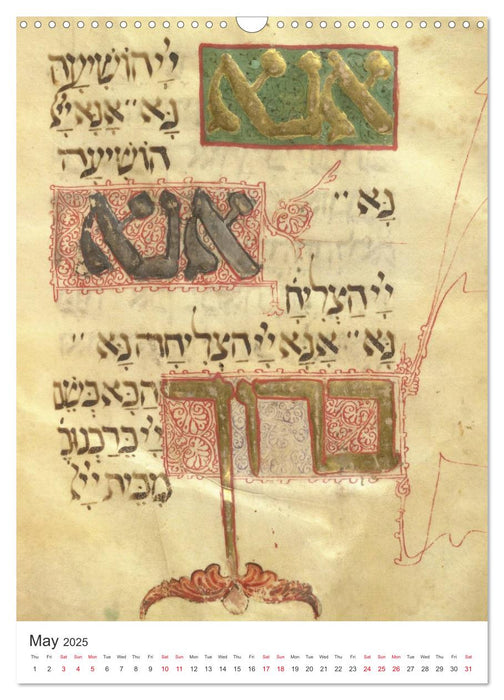 אנא יְיָ הוֹשִׁיעָה
נָּא אָנָּא יְיָ
הוֹשִׁיעָה
נָּא
אנא
יְיָ הַצְלִיחָ
נָּא אָנָּא יְיָ הַצְלִיחָה נָּא
ברוך הַבָּא בְּשֵׁם
יְיָ בֵּרַכְנוּכֶ
מִבֵּית יְיָ
May 2025
Thu Fri Sat Sun Mon Tue Wed Thu Fri Sat Sun Mon Tue Wed Thu Fri Sat Sun Mon Tue Wed Thu Fri Sat Sun Mon Tue Wed Thu Fri Sat
1 2 3 4 5 6 7 8 9 10 11 12 13 14 15 16 17 18 19 20 21 22 23 24 25 26 27 28 29 30 31